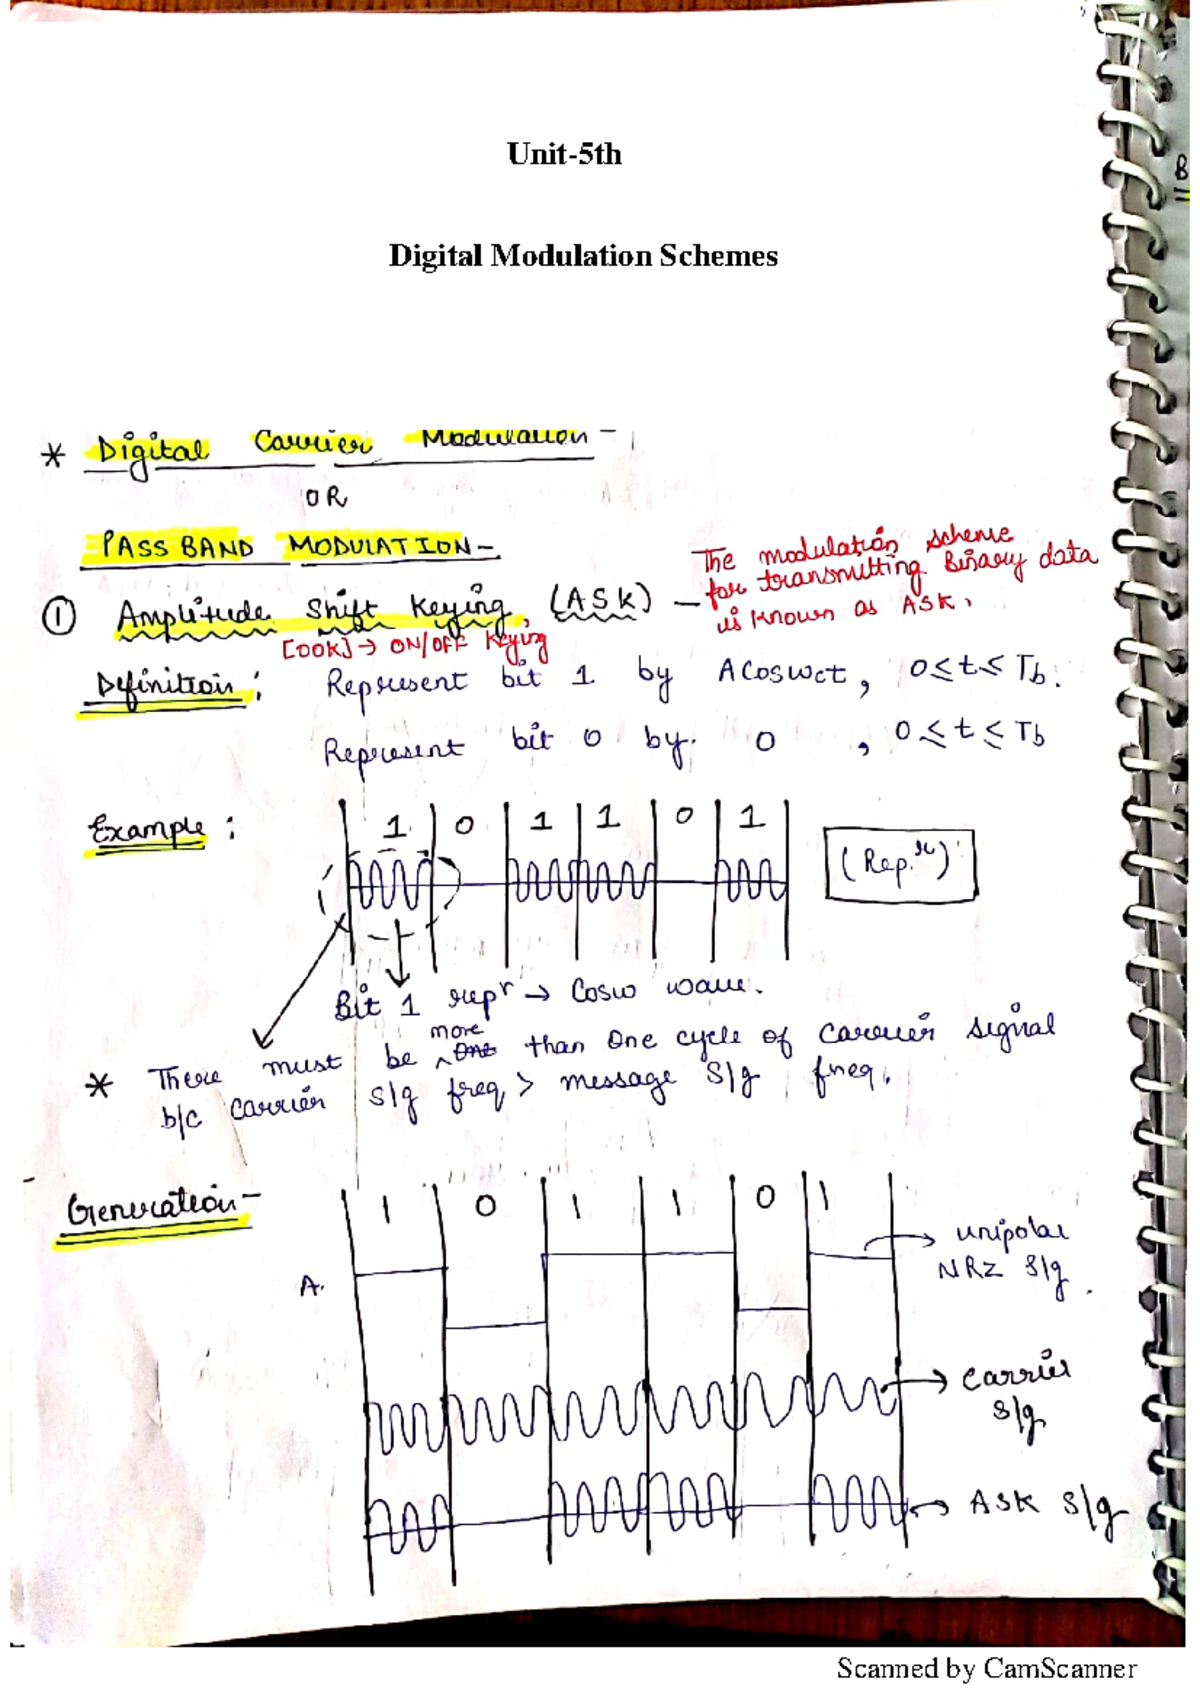 Unit-5th
Digital Modulation Schemes
B
* Digital Carrier Modulation -
OR
PASS BAND MODULATION -
① Amplitude Shift Keying, (ASK) - The modulation scheme
for transmitting Binary data
is known as ASK.
[OOK] → ON/OFF Keying
Definition : Represent bit 1 by A Coswct, 0≤t≤Tb.
Represent bit 0 by 0 , 0≤t≤Tb
Example : 1 0 1 1 0 1
(Rep.)
Bit 1 repr → Cosw wave.
more
* There must be ^ One than One cycle of carrier signal
b/c carrier s/g freq > message s/g freq.
Generation - 1 0 1 1 0 1
A.
unipolar
NRZ s/g.
carrier
s/g
ASK s/g
Scanned by CamScanner